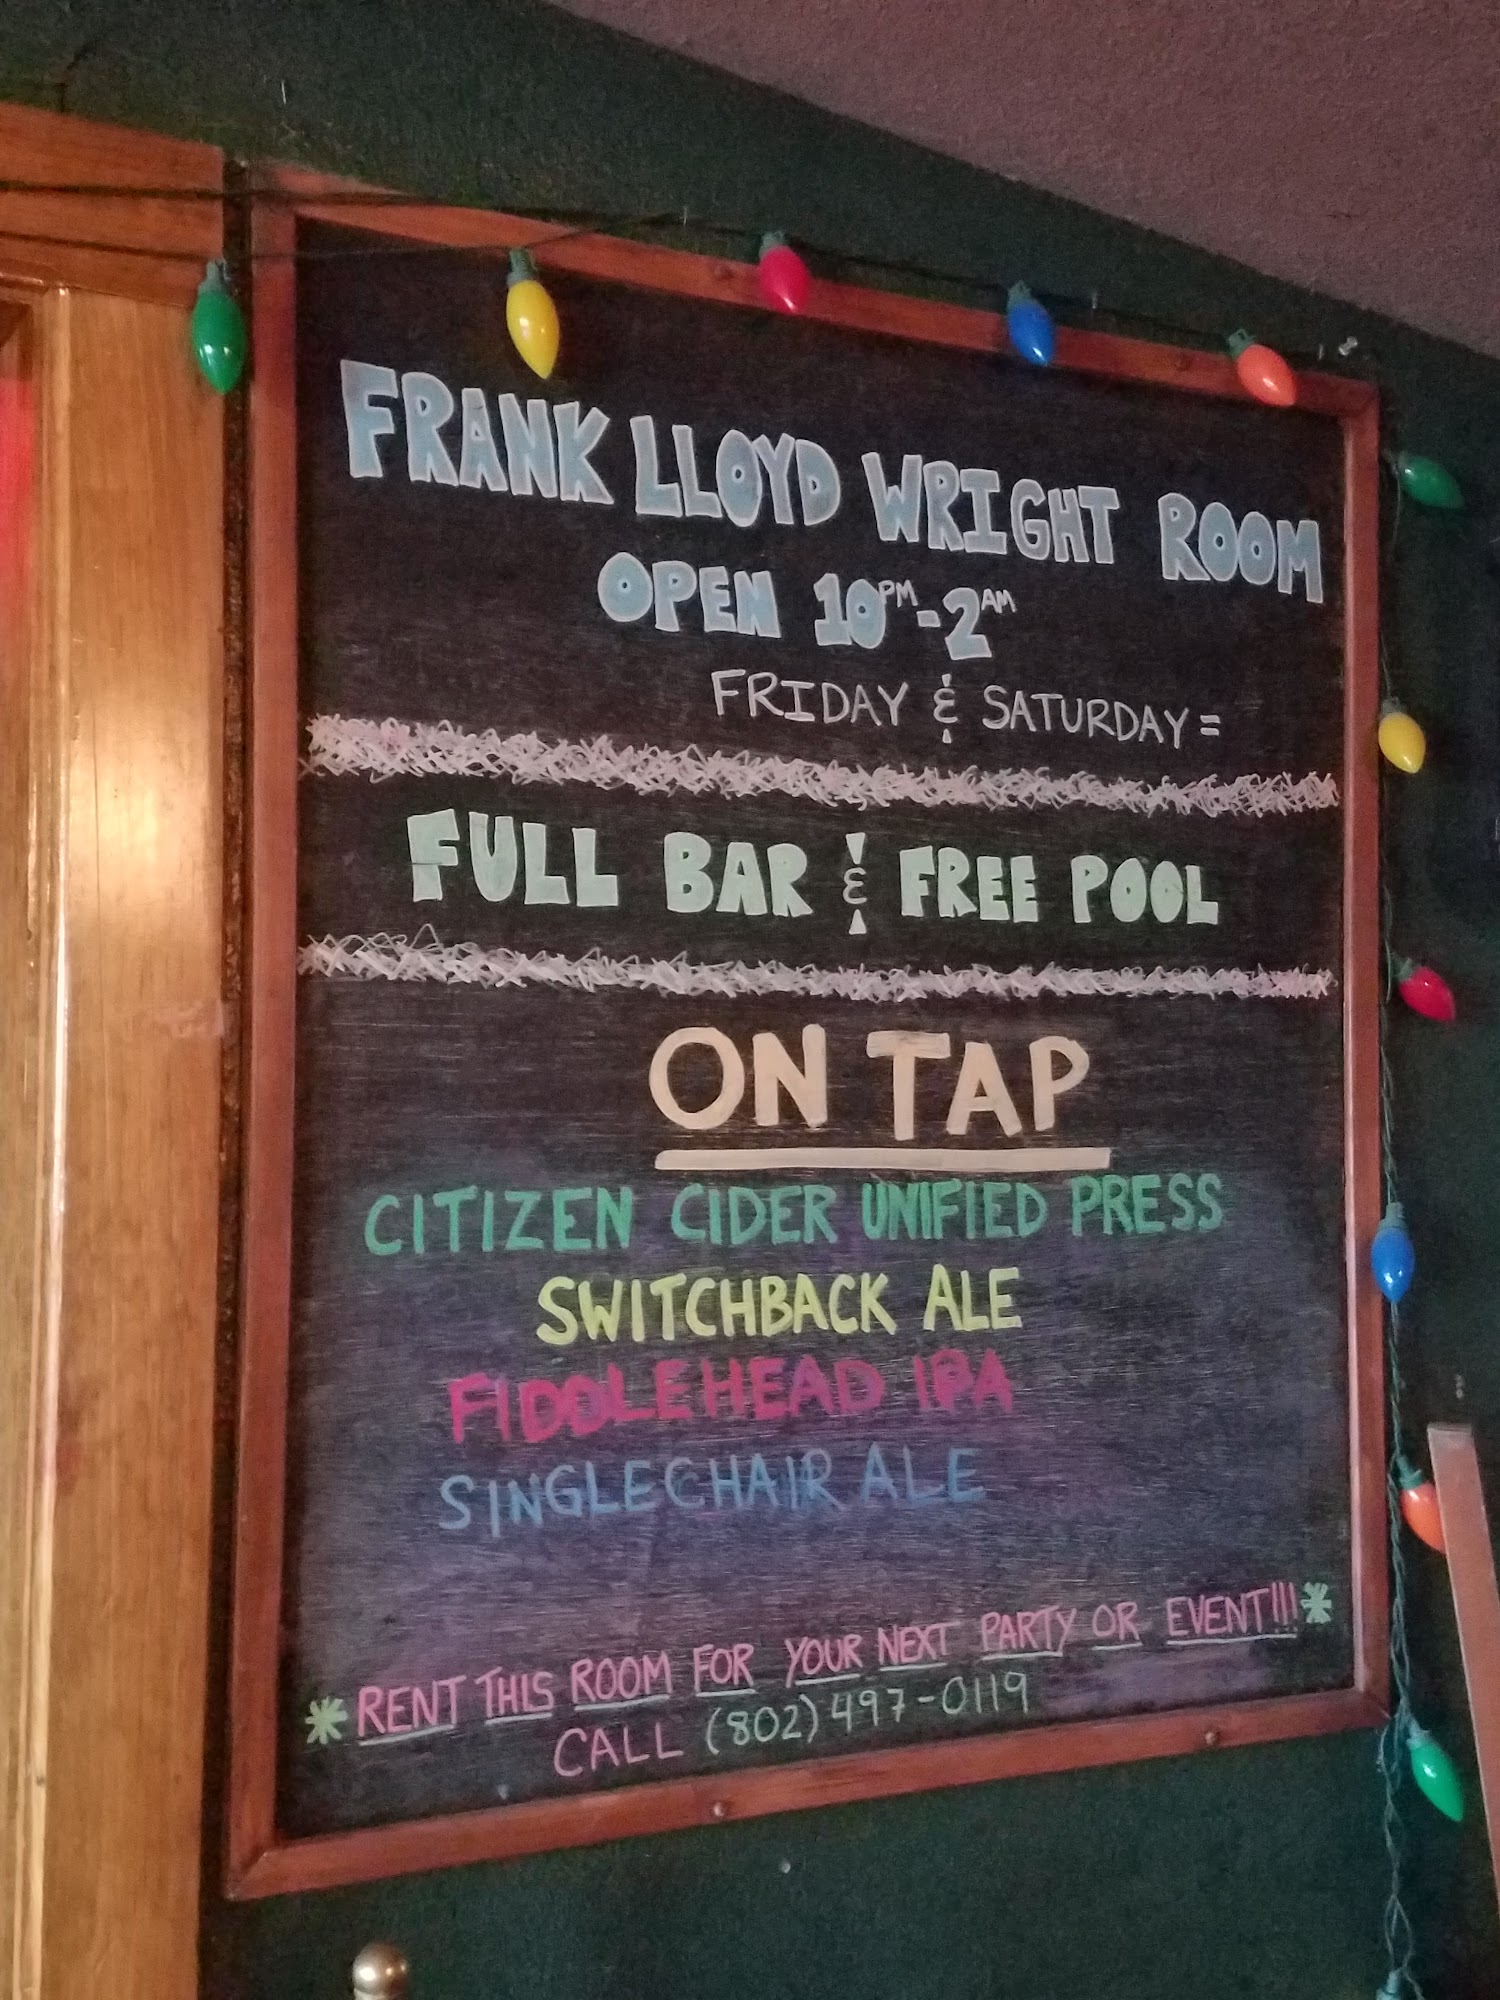 FRANK LLOYD WRIGHT ROOM
OPEN 10PM-2AM
FRIDAY & SATURDAY =
FULL BAR & FREE POOL
ON TAP
CITIZEN CIDER UNIFIED PRESS
SWITCHBACK ALE
FIDDLEHEAD IPA
SINGLECHAIR ALE
*RENT THIS ROOM FOR YOUR NEXT PARTY OR EVENT!!!*
CALL (802)497-0119